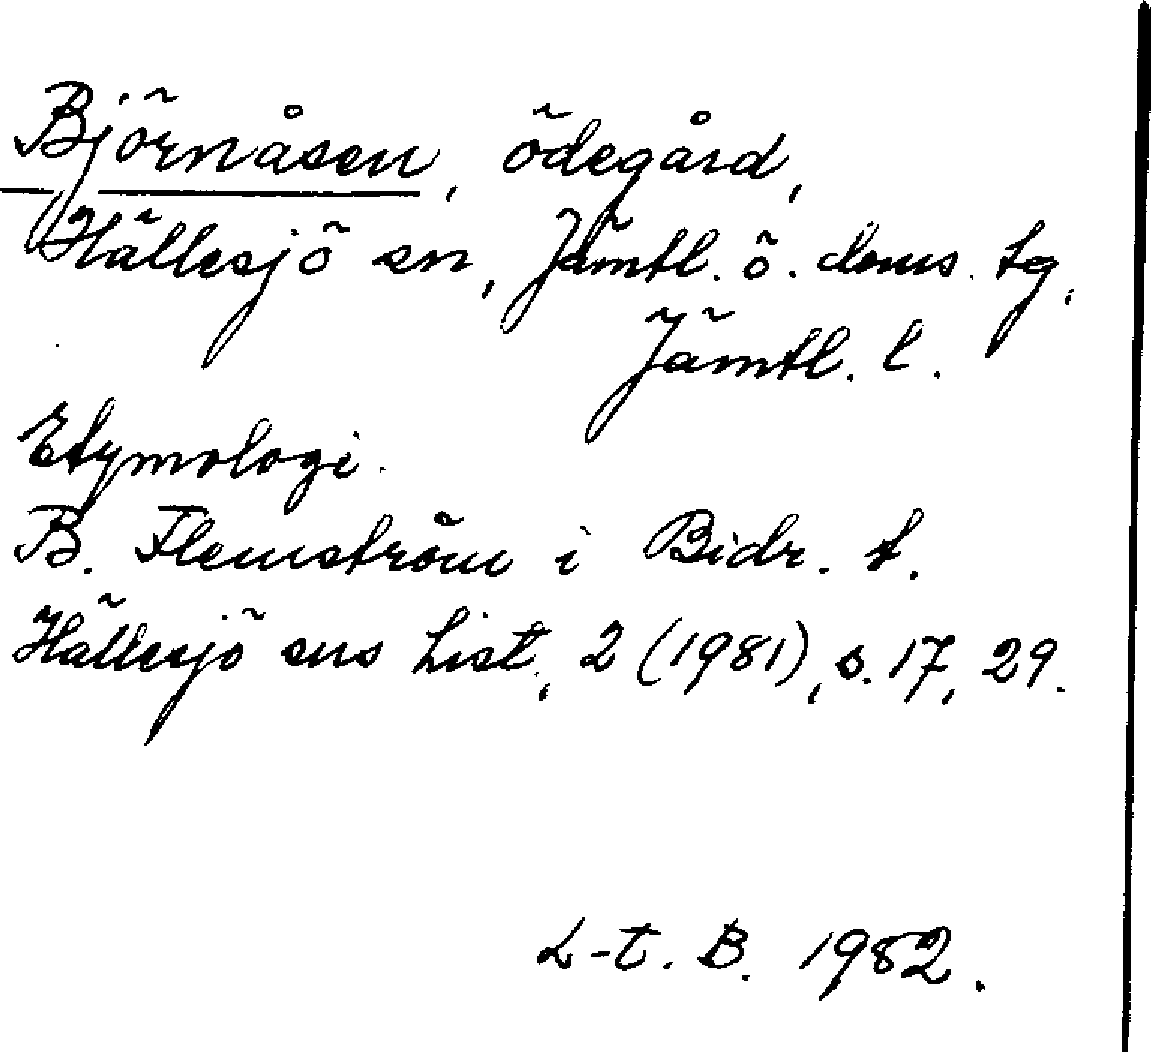 Björnåsen, ödegård,
Hällesjö sn, Jämtl. ö. doms. tg,
Jämtl. l.
Etymologi.
B. Flemström i Bidr. t.
Hällesjö sns hist., 2 (1981), s. 17, 29.
L-t. B. 1982.